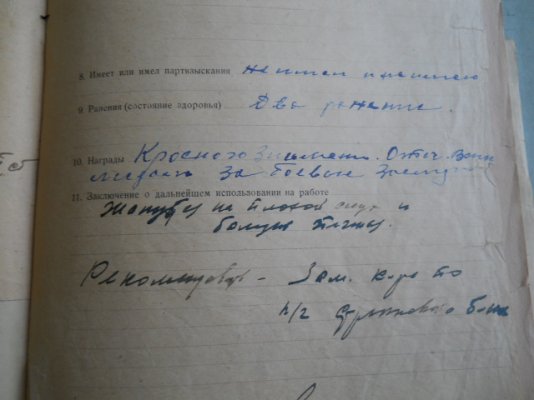 8. Имеет или имел партвзыскания не имел и не имею
9. Ранения (состояние здоровья) Два ранение.
10. Награды Красного Знамени. Отеч. Войн
медаль за боевые заслуги
11. Заключение о дальнейшем использовании на работе
на плохой слух и
Рекомендовать – Зам. по
п/г стрелкового